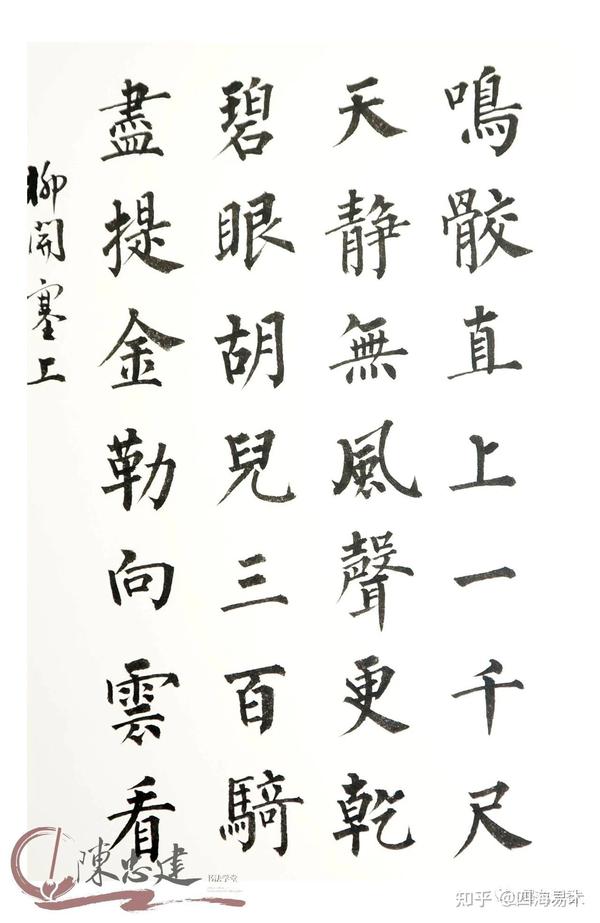 鳴骹直上一千尺
天靜無風聲更乾
碧眼胡兒三百騎
盡提金勒向雲看
柳開塞上
陳忠建
书法学堂
知乎 @四海易木